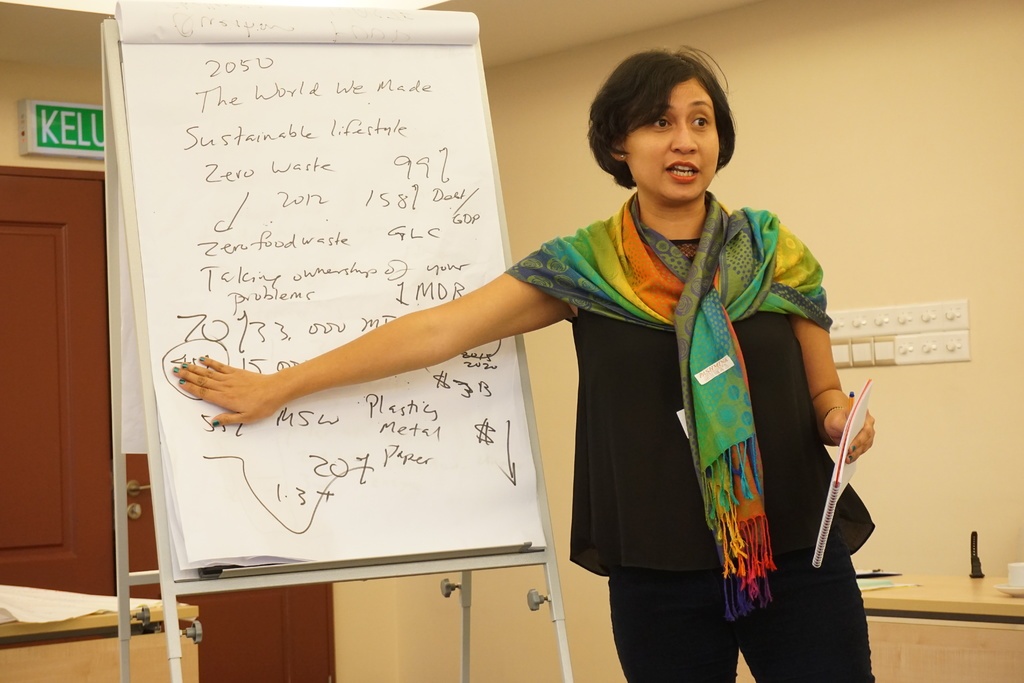 KELU
2050
The World We Made
Sustainable lifestyle
Zero waste 99%
2012 158% Debt/GDP
Zero food waste GLC
Taking ownership of your
problems 1 MDB
70% 33,000
15,00
2015
2020
$3B
MSW Plastics
Metal
$
20% Paper
1.3+